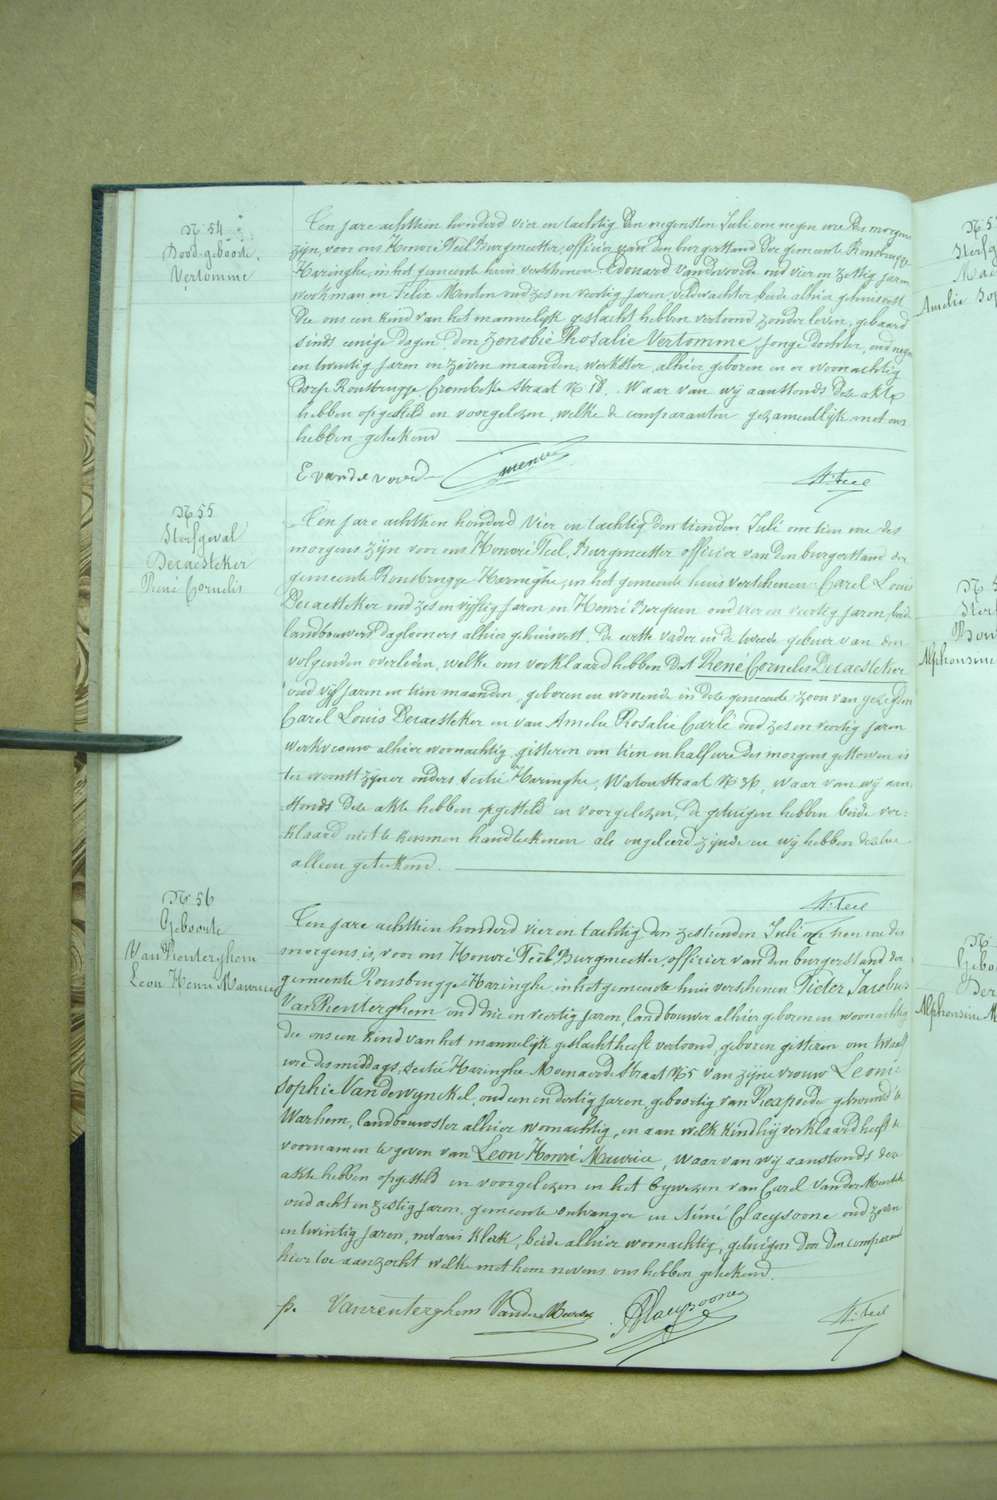 N° 54
Dood-geboorte.
Vertomme
Ten jare achttien honderd vier en tachtig den negensten Juli om negen ure des morgens
zijn, voor ons Honoré Teel Burgmeester, officier van den burgerstand der gemeente Rousbrugge
Haringhe, in het gemeente huis verschenen Edouard Vandevoorde oud vier en zestig jaren
werkman en Felix Menten oud zes en veertig jaren, veldwachter beide alhier gehuisvest
die ons een kind van het mannelijk geslacht hebben vertoond zonder leven, gebaard
sinds eenige dagen door Zenobie Rosalie Vertomme jonge dochter, oud negen
en twintig jaren en zeven maanden, werkster, alhier geboren en er woonachtig
dorp Rousbrugge Crombeke straat N° 18. Waar van wij aanstonds deze akte
hebben opgesteld en voorgelezen, welke de comparanten gezamentlijk met ons
hebben geteekend
E vandevoorde
H. Teel
N° 55
Sterfgeval
Decaesteker
René Cornelis
Ten jare achttien honderd vier en tachtig den tienden Juli om tien ure des
morgens zijn voor ons Honoré Teel, Burgmeester officier van den burgerstand der
gemeente Rousbrugge Haringhe, in het gemeente huis verschenen Carel Louis
Decaesteker oud zes en vijftig jaren en Henri Berquin oud vier en veertig jaren, beide
landbouwers daglooners alhier gehuisvest. De eerste vader en de tweede gebuur van den
volgenden overleden, welke ons verklaard hebben dat René Cornelis Decaesteker
oud vijf jaren en tien maanden, geboren en wonende in deze gemeente zoon van gezegden
Carel Louis Decaesteker en van Amelie Rosalie Carle oud zes en veertig jaren
werkvrouw alhier woonachtig, gisteren om tien en half ure des morgens gestorven is
ter woonst zijner ouders sectie Haringhe, Watou straat N° 36, waar van wij aan-
stonds deze akte hebben opgesteld en voorgelezen, de getuigen hebben beide ver-
klaard niet te kunnen handteekenen als ongeleerd zijnde en wij hebben dezelve
alleen geteekend.
H. Teel
N° 56
Geboorte
Van Renterghem
Leon Henri Maurice
Ten jare achttien honderd vier en tachtig den zestienden Juli om tien ure des
morgens, is, voor ons Honoré Teel Burgmeester, officier van den burgerstand der
gemeente Rousbrugge Haringhe, in het gemeente huis verschenen Pieter Jacobus
Van Renterghem oud drie en veertig jaren, landbouwer alhier geboren en woonachtig
die ons een kind van het mannelijk geslacht heeft vertoond, geboren gisteren om twaalf
ure des middags, sectie Haringhe Moenaerde straat N° 5 van zijne vrouw Leonie
Sophie Vandewynckel, oud een en dertig jaren, geboortig van Rexpoede getrouwd te
Warhem, landbouwster alhier woonachtig, en aan welk kind hij verklaard heeft de
voornamen te geven van Leon Henri Maurice, waar van wij aanstonds deze
akte hebben opgesteld en voorgelezen in het bijwezen van Carel Van der Meersch
oud acht en zestig jaren, gemeente ontvanger en Aimé Claeysoone oud zeven
en twintig jaren, notaris klerk, beide alhier woonachtig, getuigen door den comparant
hier toe aanzocht welke met hem nevens ons hebben geteekend.
p. Vanrenterghem Vander Meersch A Claeysoone H. Teel
Sterfg
Amelie Sop
Alphonsine
Gebo
Alphonsine M